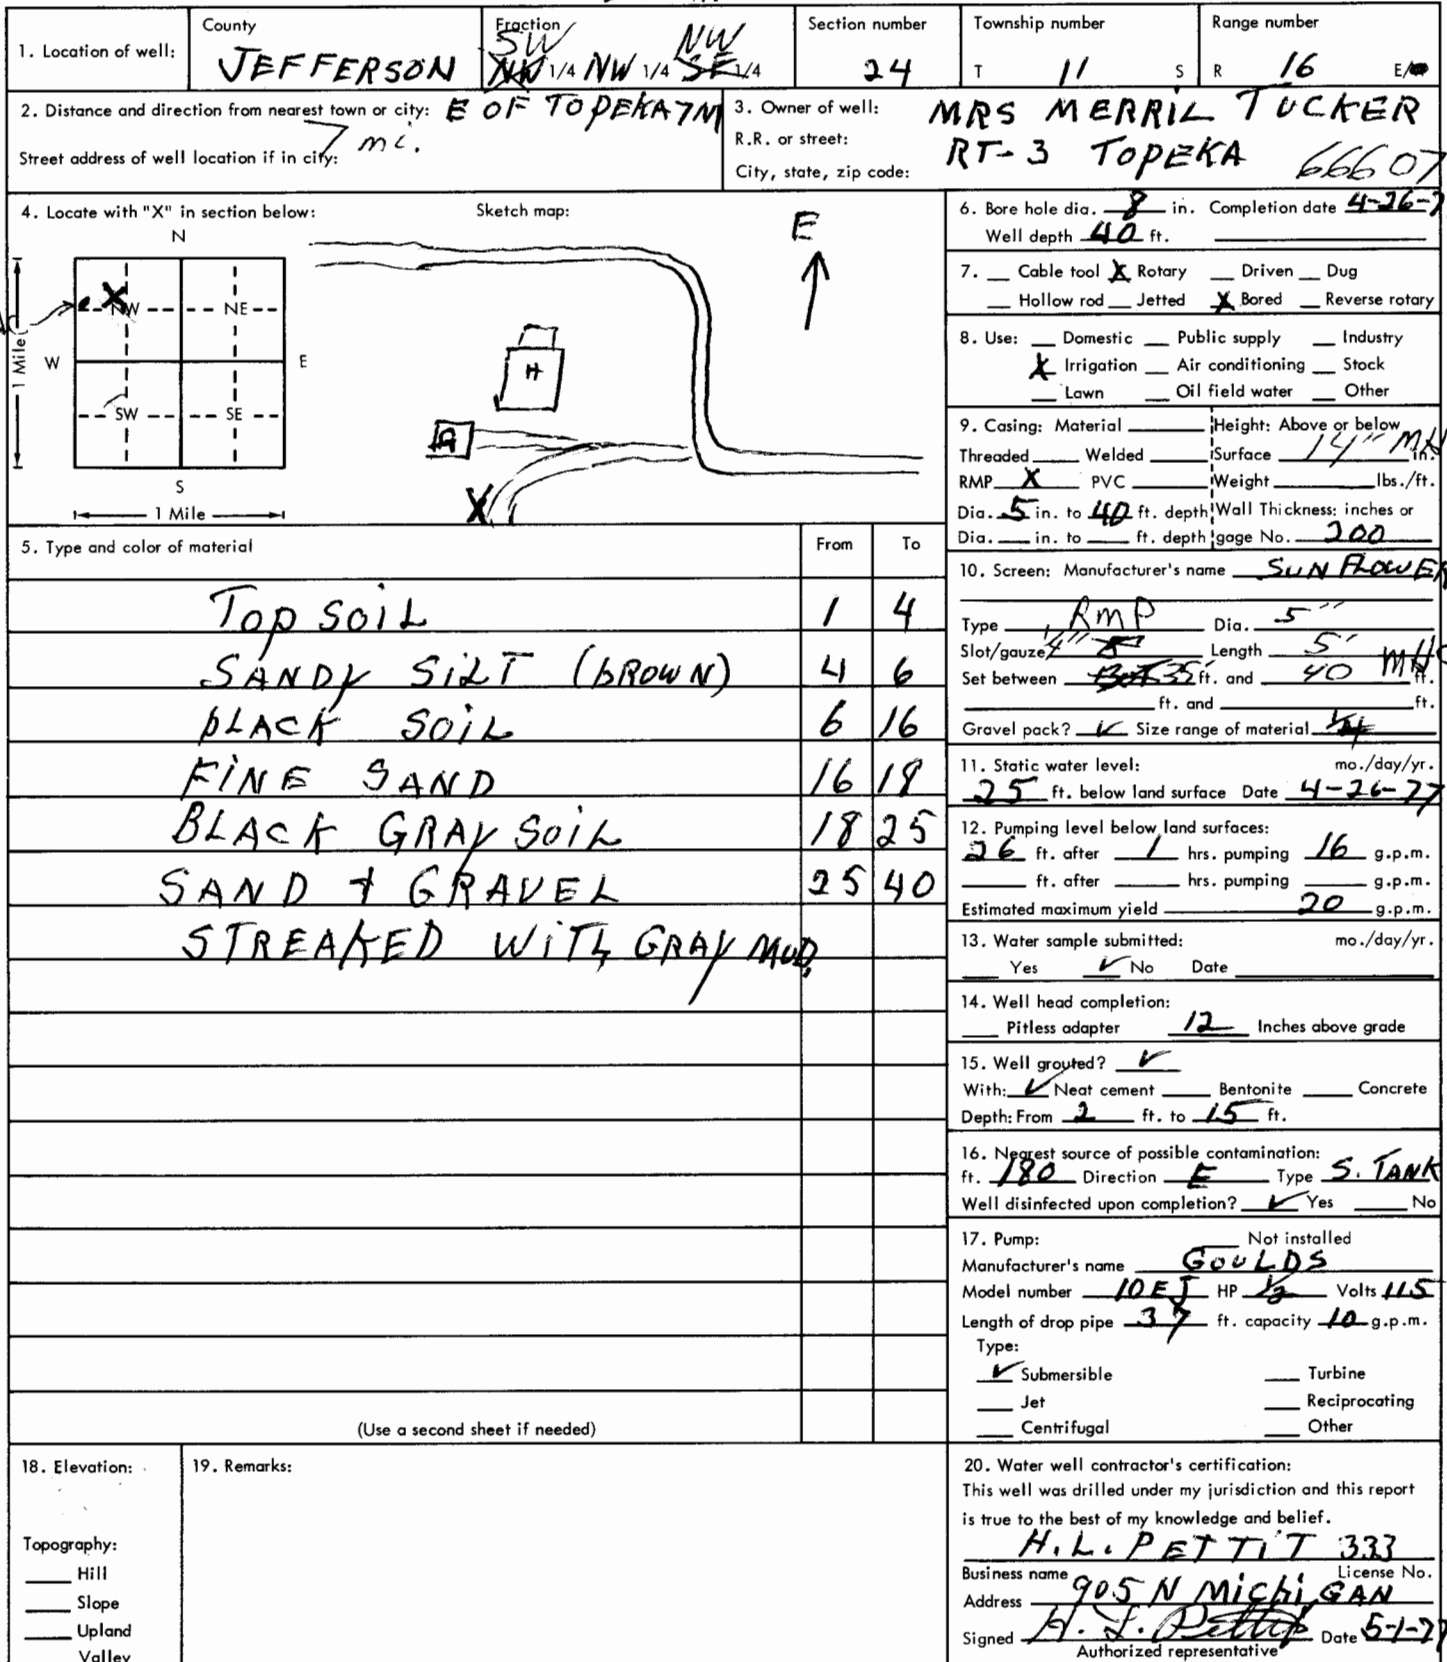 County
Fraction
Section number
Township number
Range number
1. Location of well:
SW NW
JEFFERSON NW 1/4 NW 1/4 SE 1/4
24
T 11 S
R 16 E/
2. Distance and direction from nearest town or city: E OF TOPEKA 7M
7 mi.
Street address of well location if in city:
3. Owner of well: MRS MERRIL TUCKER
R.R. or street: RT-3 TOPEKA 66607
City, state, zip code:
4. Locate with "X" in section below:
Sketch map:
N
E
X
NW NE
W E
1 Mile
H
SW SE
G
S
X
1 Mile
5. Type and color of material From To
Top SOIL 1 4
SANDY SILT (BROWN) 4 6
BLACK SOIL 6 16
FINE SAND 16 18
BLACK GRAY SOIL 18 25
SAND + GRAVEL 25 40
STREAKED WITH GRAY MUD,
(Use a second sheet if needed)
6. Bore hole dia. 8 in. Completion date 4-26-7
Well depth 40 ft.
7. Cable tool X Rotary Driven Dug
Hollow rod Jetted X Bored Reverse rotary
8. Use: Domestic Public supply Industry
X Irrigation Air conditioning Stock
Lawn Oil field water Other
9. Casing: Material Height: Above or below
Threaded Welded Surface 14" MH in.
RMP X PVC Weight lbs./ft.
Dia. 5 in. to 40 ft. depth Wall Thickness: inches or
Dia. in. to ft. depth gage No. 200
10. Screen: Manufacturer's name SUNFLOWER
Type RMP Dia. 5"
Slot/gauze Length 5'
Set between 35' ft. and 40 ft.
ft. and ft.
Gravel pack? ✓ Size range of material 1/4
11. Static water level: mo./day/yr.
25 ft. below land surface Date 4-26-77
12. Pumping level below land surfaces:
26 ft. after 1 hrs. pumping 16 g.p.m.
ft. after hrs. pumping g.p.m.
Estimated maximum yield 20 g.p.m.
13. Water sample submitted: mo./day/yr.
Yes ✓ No Date
14. Well head completion:
Pitless adapter 12 Inches above grade
15. Well grouted? ✓
With: ✓ Neat cement Bentonite Concrete
Depth: From 2 ft. to 15 ft.
16. Nearest source of possible contamination:
ft. 180 Direction E Type S. TANK
Well disinfected upon completion? ✓ Yes No
17. Pump: Not installed
Manufacturer's name GOULDS
Model number 10EJ HP 1/2 Volts 115
Length of drop pipe 37 ft. capacity 10 g.p.m.
Type:
✓ Submersible Turbine
Jet Reciprocating
Centrifugal Other
18. Elevation:
Topography:
Hill
Slope
Upland
Valley
19. Remarks:
20. Water well contractor's certification:
This well was drilled under my jurisdiction and this report
is true to the best of my knowledge and belief.
H.L. PETTIT 333
Business name License No.
Address 905 N MICHIGAN
Signed H. L. Pettit Date 5-1-77
Authorized representative